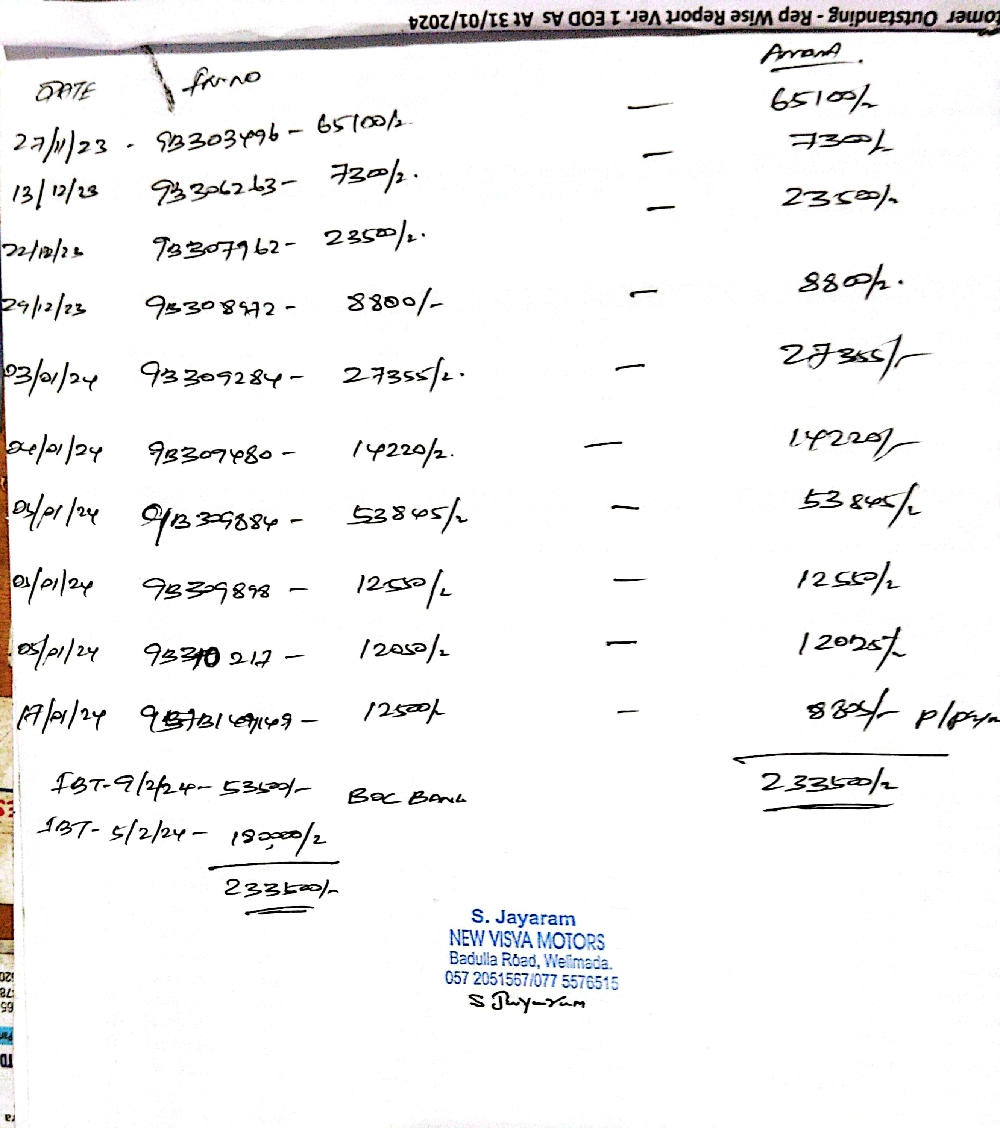 tomer Outstanding - Rep Wise Report Ver. 1 EOD As At 31/01/2024
DATE Inv no Amount
27/11/23 - 9B303496 - 65100/- — 65100/-
13/12/23 9B306263 - 7300/- — 7300/-
22/12/23 9B307962 - 23500/- — 23500/-
29/12/23 9B308972 - 8800/- — 8800/-
03/01/24 9B309284 - 27355/- — 27355/-
04/01/24 9B309480 - 14220/- — 14220/-
05/01/24 9B309884 - 53845/- — 53845/-
05/01/24 9B309898 - 12550/- — 12550/-
05/01/24 9B310217 - 12050/- — 12025/-
17/01/24 12500/- — 8805/- P/
IBT-9/2/24 - 53500/- BOC BANK 233500/-
IBT- 5/2/24 - 180000/-
233500/-
S. Jayaram
NEW VISVA MOTORS
Badulla Road, Welimada.
057 2051567/077 5576515
S Jayaram